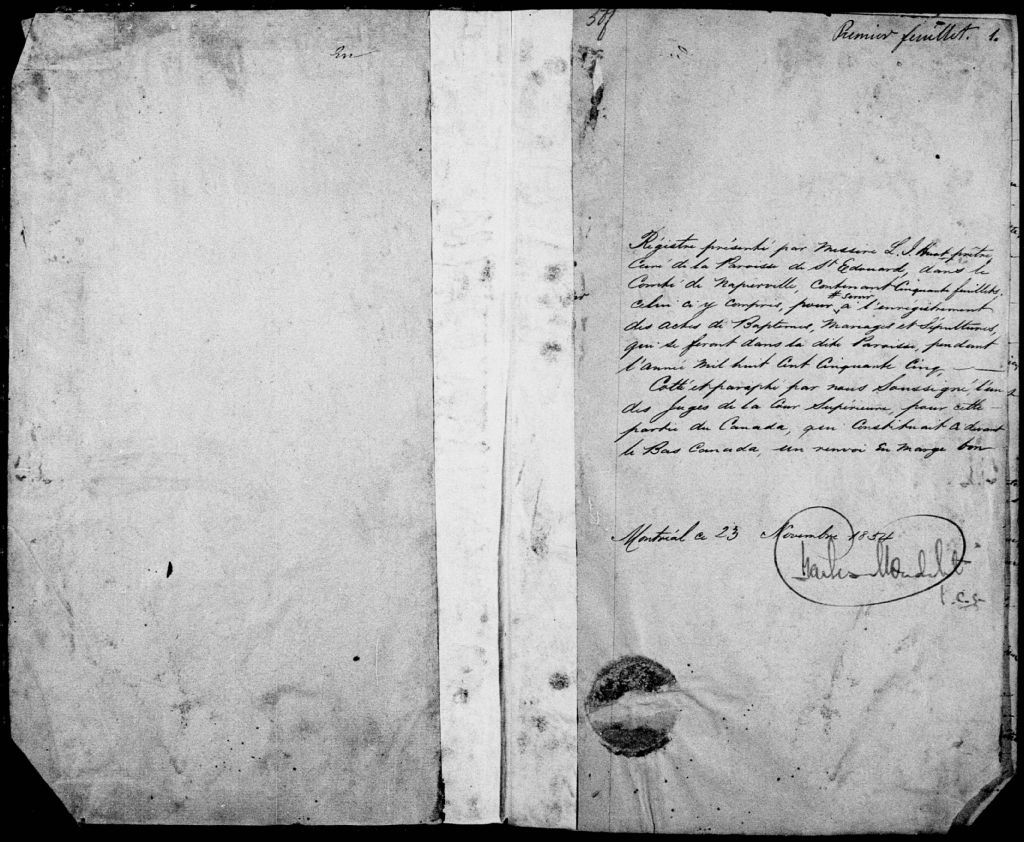 50f
Premier feuillet. 1.
Régistre présenté par Messire L. J. Huot prêtre,
Curé de la Paroisse de St Edouard, dans le
Comté de Napierville, Contenant Cinquante feuillets,
celui ci y compris, pour # servir à l'enrégistrement
des actes de Baptêmes, Mariages et Sépultures,
qui se feront dans la dite Paroisse, pendant
l'année Mil huit Cent Cinquante Cinq, —
Cotté et paraphé par nous Soussigné l'un
des Juges de la Cour Supérieure, pour cette
partie du Canada, qui Constituait Ci devant
le Bas Canada, un renvoi En marge bon
Montréal ce 23 Novembre 1854
Charles Mondelet
J.C.S.